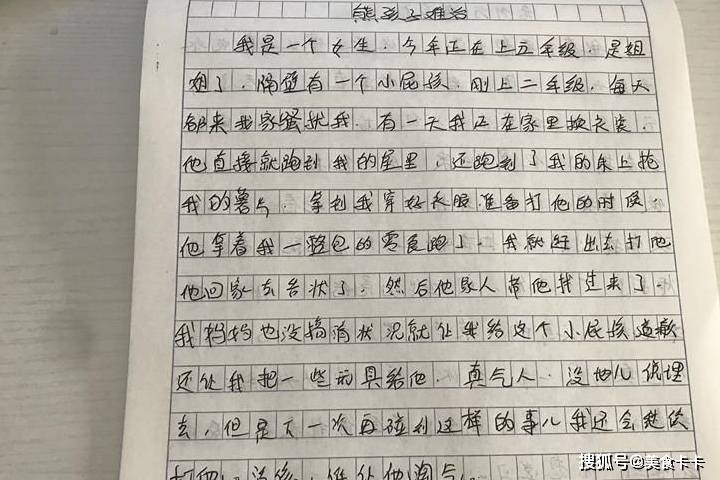 熊孩子难治
我是一个女生，今年正在上五年级，是姐
姐了，隔壁有一个小屁孩，刚上二年级，每天
都来我家骚扰我，有一天我正在家里换衣裳，
他直接就跑到我的屋里，还跑到了我的床上抢
我的薯片，等到我穿好衣服准备打他的时候
他拿着我一整包的零食跑了，我就赶出去打他
他回家去告状了，然后他家人带他找过来了，
我妈妈也没搞清状况就让我给这个小屁孩道歉
还让我把一些玩具给他，真气人，没地儿说理
去，但是下一次再碰到这样的事儿我还会继续
打他，没修，谁让他淘气。
搜狐号@美食卡卡